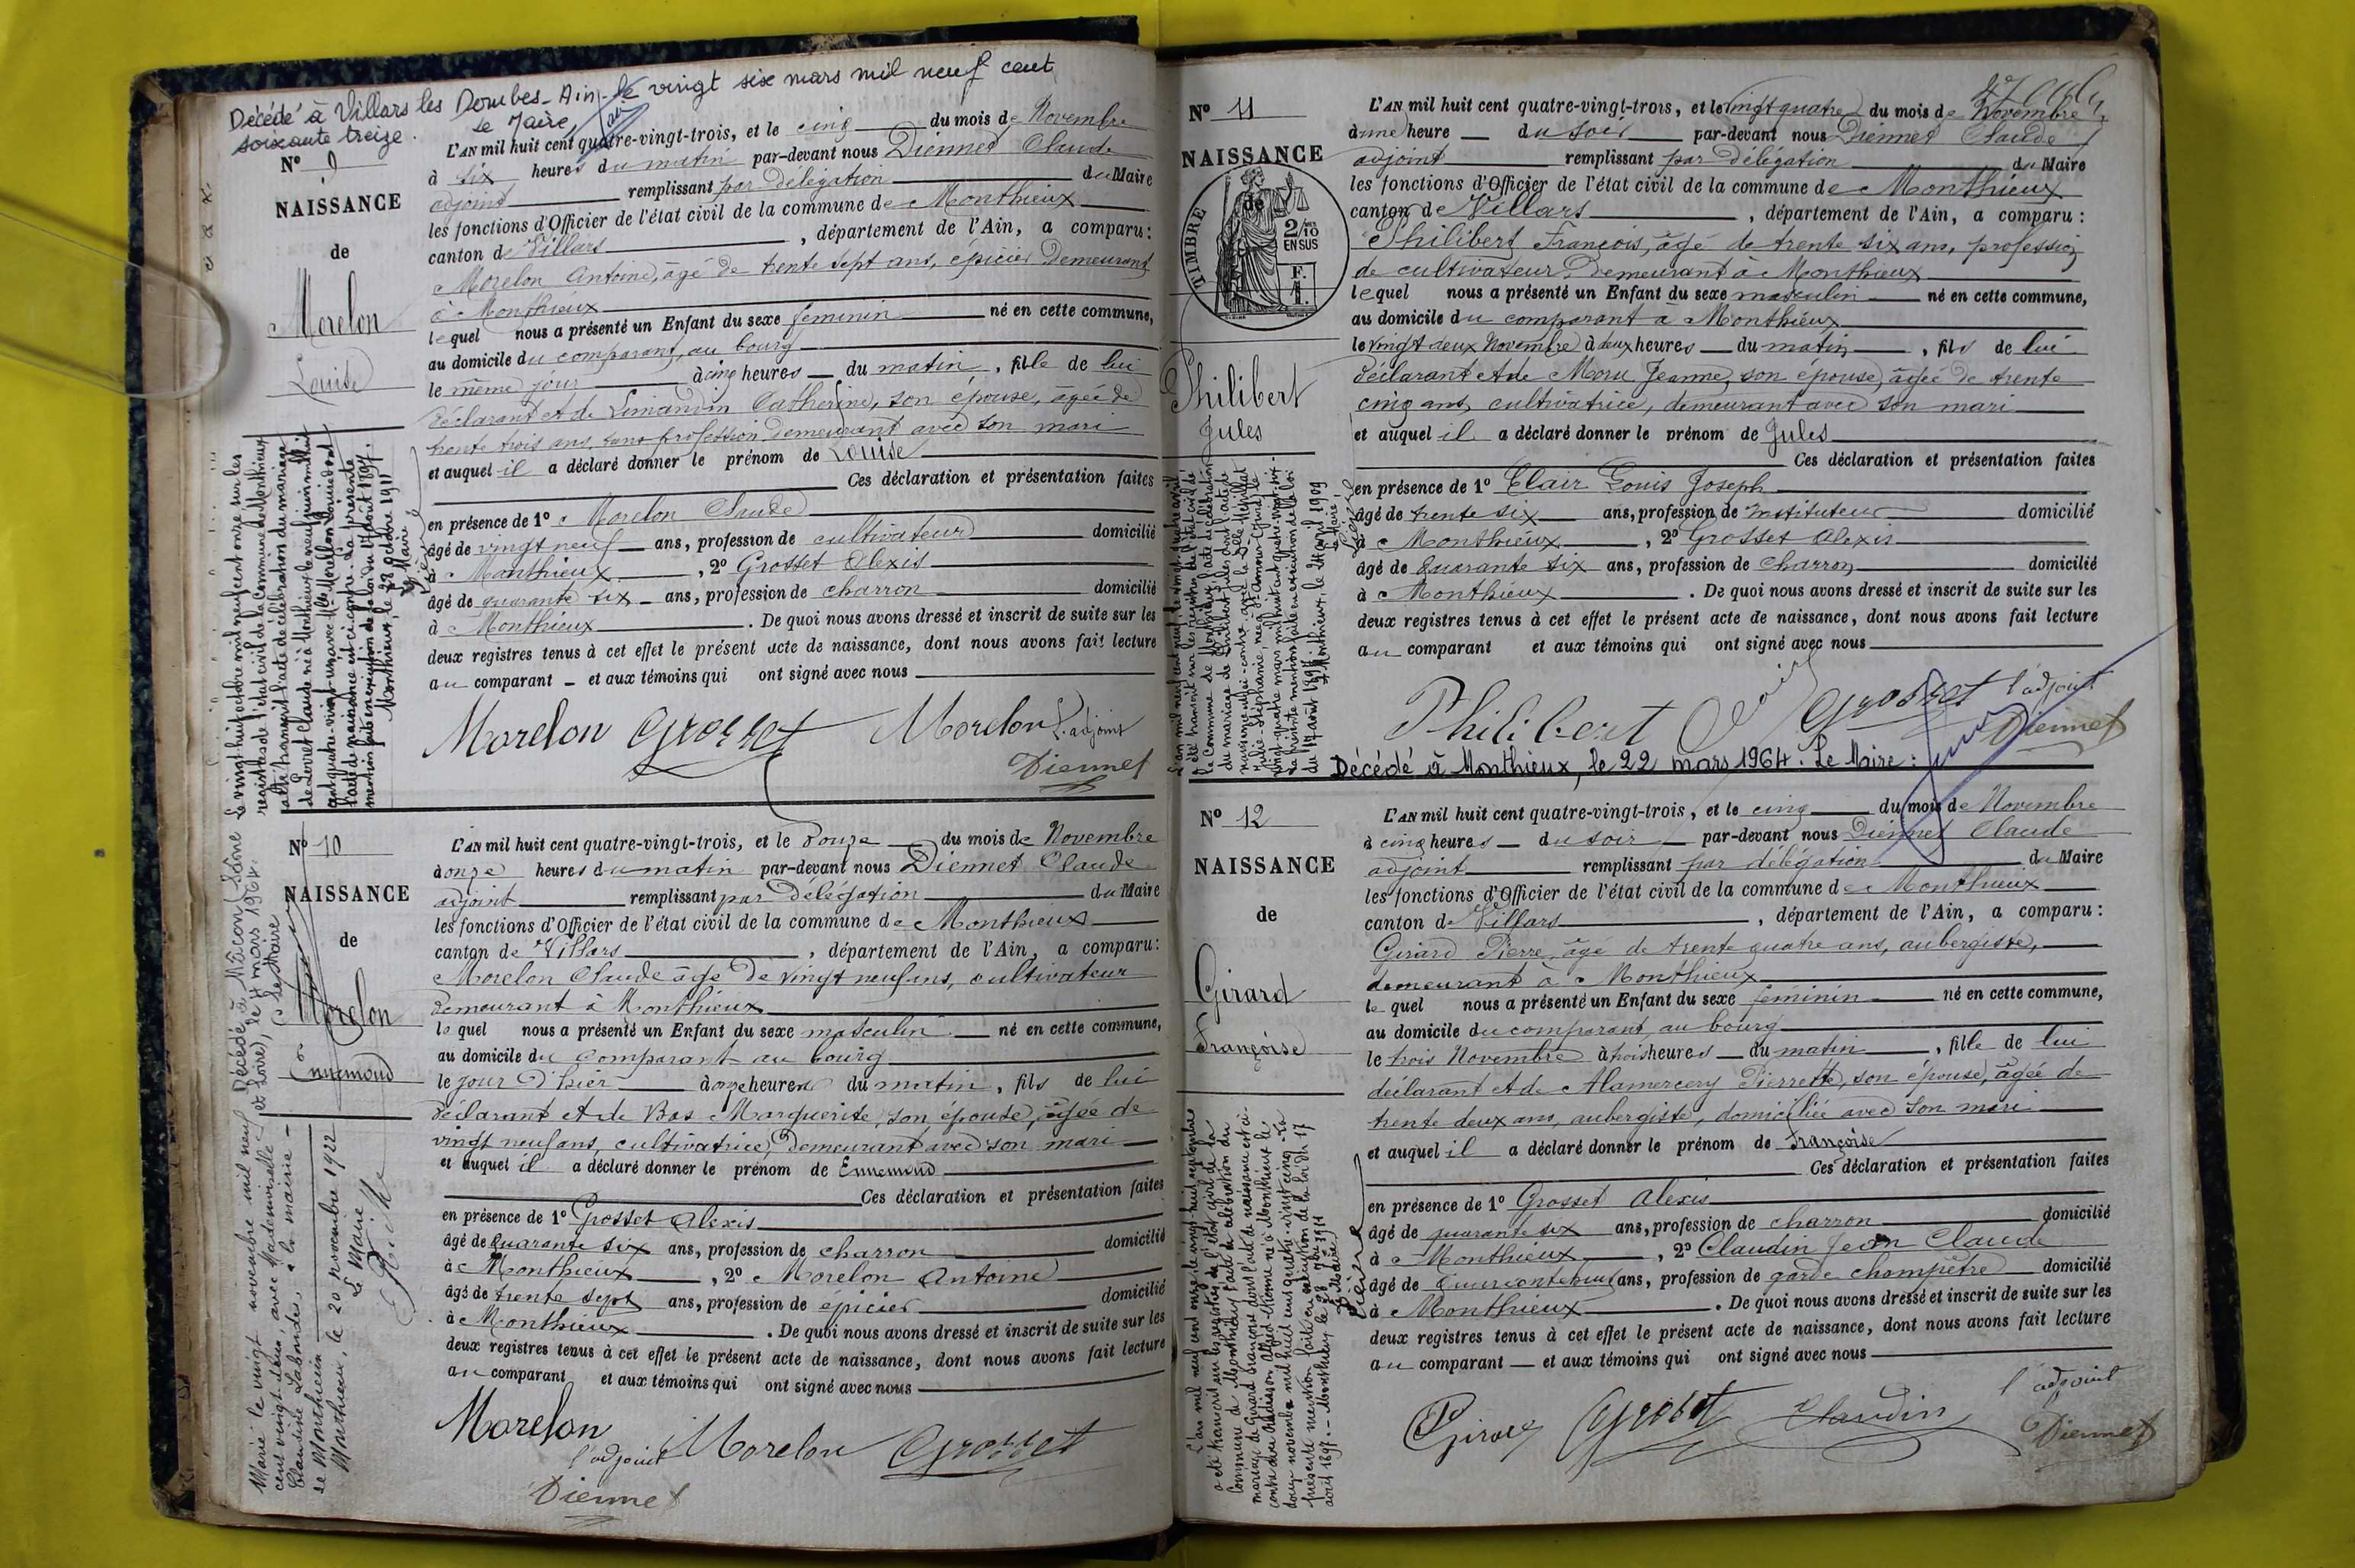 Décédé à Villars les Dombes - Ain - le vingt six mars mil neuf cent
soixante treize.
Le Maire,
N° 9
NAISSANCE
de
Morelon
Louise
L'AN mil huit cent quatre-vingt-trois, et le cinq du mois de Novembre
à six heures du matin par-devant nous Diennet Claude
adjoint remplissant par délégation du Maire
les fonctions d'Officier de l'état civil de la commune de Monthieux
canton de Villars, département de l'Ain, a comparu:
Morelon Antoine, âgé de trente sept ans, épicier demeurant
à Monthieux
lequel nous a présenté un Enfant du sexe féminin né en cette commune,
au domicile du comparant, au bourg
le même jour à cinq heures du matin, fille de lui
déclarant et de Catherine, son épouse, âgée de
trente trois ans, sans profession demeurant avec son mari
et auquel il a déclaré donner le prénom de Louise
Ces déclaration et présentation faites
en présence de 1° Morelon Claude
âgé de vingt neuf ans, profession de cultivateur domicilié
à Monthieux, 2° Grosset Alexis
âgé de quarante six ans, profession de charron domicilié
à Monthieux. De quoi nous avons dressé et inscrit de suite sur les
deux registres tenus à cet effet le présent acte de naissance, dont nous avons fait lecture
au comparant et aux témoins qui ont signé avec nous
Morelon Grosset Morelon L'adjoint
Diennet
Le vingt-huit octobre mil neuf cent onze sur les
registres de l'état civil de la commune de Monthieux
a été transcrit l'acte de célébration du mariage
de Louvet Claude né à Monthieux le neuf juin mil huit
cent quatre-vingt-un avec Mlle Morellon Louise dont
l'acte de naissance est ci-contre. La présente
mention faite en exécution de la loi du 17 août 1897.
Monthieux, le 28 octobre 1911
Le Maire
N° 10
NAISSANCE
de
Morelon
Ennemond
L'AN mil huit cent quatre-vingt-trois, et le douze du mois de Novembre
à onze heures du matin par-devant nous Diennet Claude
adjoint remplissant par délégation du Maire
les fonctions d'Officier de l'état civil de la commune de Monthieux
canton de Villars, département de l'Ain, a comparu:
Morelon Claude âgé de vingt neuf ans, cultivateur
demeurant à Monthieux
lequel nous a présenté un Enfant du sexe masculin né en cette commune,
au domicile du comparant au bourg
le jour d'hier à onze heures du matin, fils de lui
déclarant et de Bas Marguerite, son épouse, âgée de
vingt neuf ans, cultivatrice, demeurant avec son mari
et auquel il a déclaré donner le prénom de Ennemond
Ces déclaration et présentation faites
en présence de 1° Grosset Alexis
âgé de quarante six ans, profession de charron domicilié
à Monthieux, 2° Morelon Antoine
âgé de trente sept ans, profession de épicier domicilié
à Monthieux. De quoi nous avons dressé et inscrit de suite sur les
deux registres tenus à cet effet le présent acte de naissance, dont nous avons fait lecture
au comparant et aux témoins qui ont signé avec nous
Morelon
l'adjoint Morelon Grosset
Diennet
Décédé à Mâcon (Saône
et Loire), le 7 mars 1964.
Le Maire
Marié le vingt novembre mil neuf
cent vingt-deux, avec Mademoiselle
Claudine Labrosse, à la mairie
de Monthieux
Monthieux, le 20 novembre 1922
Le Maire
N° 11
NAISSANCE
de
TIMBRE
2/10
EN SUS
F.
1.
Philibert
Jules
L'AN mil huit cent quatre-vingt-trois, et le vingt quatre du mois de Novembre
à une heure du soir par-devant nous Diennet Claude
adjoint remplissant par délégation du Maire
les fonctions d'Officier de l'état civil de la commune de Monthieux
canton de Villars, département de l'Ain, a comparu:
Philibert François, âgé de trente six ans, profession
de cultivateur, demeurant à Monthieux
lequel nous a présenté un Enfant du sexe masculin né en cette commune,
au domicile du comparant à Monthieux
le vingt deux Novembre à deux heures du matin, fils de lui
déclarant et de Moru Jeanne, son épouse, âgée de trente
cinq ans, cultivatrice, demeurant avec son mari
et auquel il a déclaré donner le prénom de Jules
Ces déclaration et présentation faites
en présence de 1° Clair Louis Joseph
âgé de trente six ans, profession de instituteur domicilié
à Monthieux, 2° Grosset Alexis
âgé de quarante six ans, profession de charron domicilié
à Monthieux. De quoi nous avons dressé et inscrit de suite sur les
deux registres tenus à cet effet le présent acte de naissance, dont nous avons fait lecture
au comparant et aux témoins qui ont signé avec nous
Philibert Clair Grosset l'adjoint
Diennet
Décédé à Monthieux, le 22 mars 1964. Le Maire:
du 17 août 1897. Monthieux, le 24 avril 1909
Le Maire
N° 12
NAISSANCE
de
Girard
Françoise
L'AN mil huit cent quatre-vingt-trois, et le cinq du mois de Novembre
à cinq heures du soir par-devant nous Diennet Claude
adjoint remplissant par délégation du Maire
les fonctions d'Officier de l'état civil de la commune de Monthieux
canton de Villars, département de l'Ain, a comparu:
Girard Pierre, âgé de trente quatre ans, aubergiste,
demeurant à Monthieux
lequel nous a présenté un Enfant du sexe féminin né en cette commune,
au domicile du comparant, au bourg
le trois Novembre à trois heures du matin, fille de lui
déclarant et de Alamercery Pierrette, son épouse, âgée de
trente deux ans, aubergiste, domiciliée avec son mari
et auquel il a déclaré donner le prénom de Françoise
Ces déclaration et présentation faites
en présence de 1° Grosset Alexis
âgé de quarante six ans, profession de charron domicilié
à Monthieux, 2° Claudin Jean Claude
âgé de ans, profession de garde champêtre domicilié
à Monthieux. De quoi nous avons dressé et inscrit de suite sur les
deux registres tenus à cet effet le présent acte de naissance, dont nous avons fait lecture
au comparant et aux témoins qui ont signé avec nous
Girard Grosset Claudin l'adjoint
Diennet